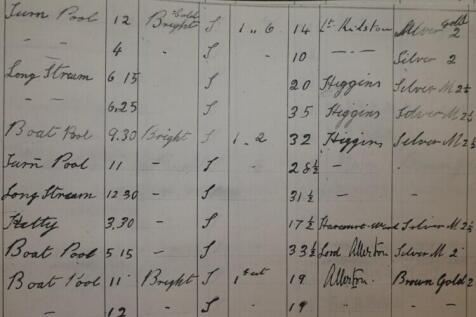 Turn Pool 12 Bright Cold S 1 .. 6 14 Lt. Kilston Silver Gold 2
4 - S 10 - .. - Silver 2
Long Stream 6 15 S 20 Higgins Silver M 2½
- - 6.25 S 35 Higgins Silver M 2½
Boat Pool 9.30 Bright S 1 .. 2 32 Higgins Silver M 2½
Turn Pool 11 - S 28½ - -
Long Stream 12 30 - S 31½ - -
Hetty 3.30 - S 17½ Silver M 2½
Boat Pool 5 15 - S 33½ Lord Allerton Silver M 2
Boat Pool 11 Bright S 19 Allerton Brown Gold 2
- 12 - S 19 - -